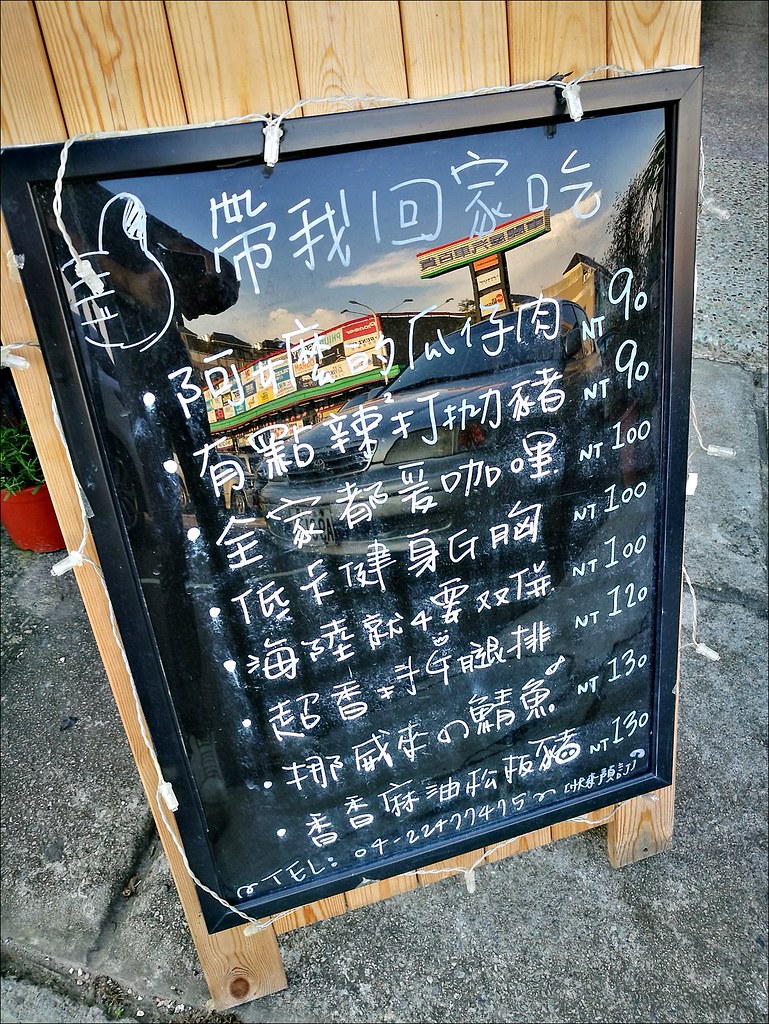 帶我回家吃
• 阿嬤的瓜仔肉 NT 90
• 有點辣打拋豬 NT 90
• 全家都爱咖哩 NT 100
• 低卡健身G胸 NT 100
• 海陸就4要双併 NT 100
• 超香ㄉG腿排 NT 120
• 挪威來の鯖魚 NT 130
• 香香麻油松板豬 NT 130
TEL: 04-22477475